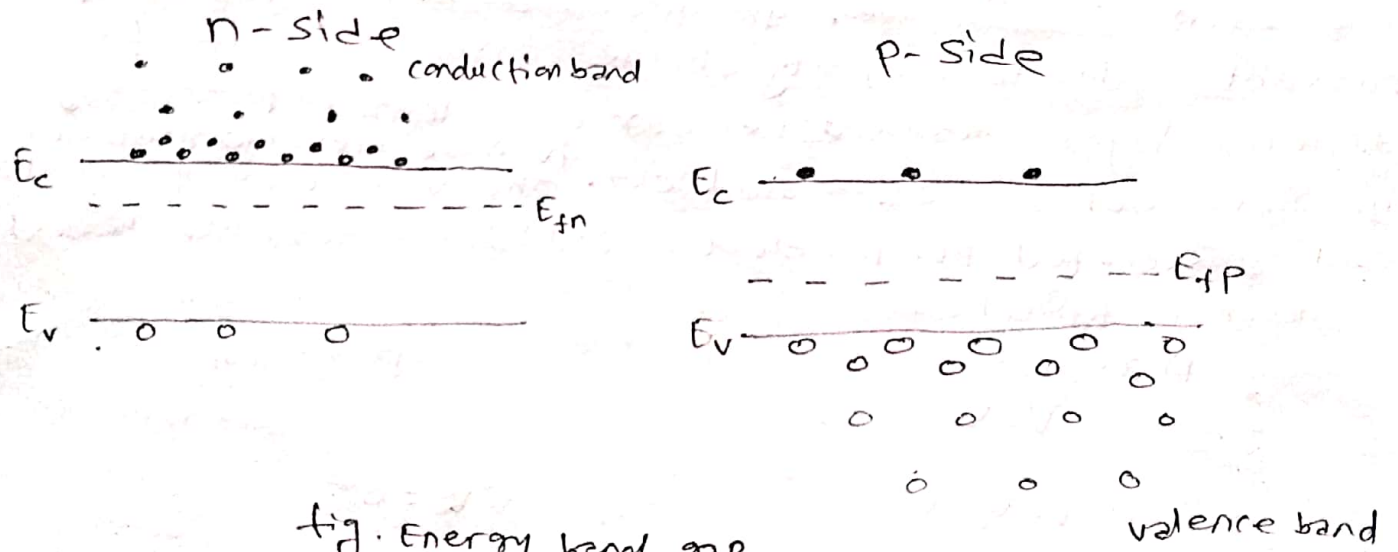 n-side
conduction band
Ec
Efn
Ev
p-side
Ec
Efp
Ev
valence band
fig. Energy band gap